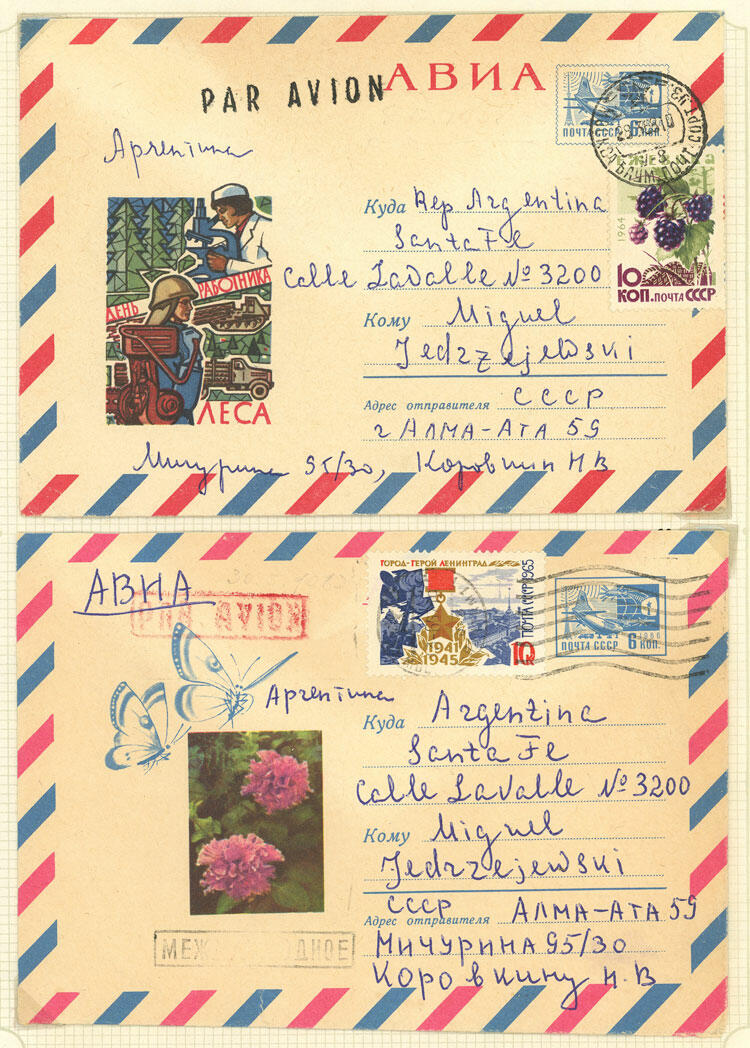 АВИА
PAR AVION
Аргентина
ПОЧТА СССР 6 КОП.
1964
10 КОП. ПОЧТА СССР
ДЕНЬ РАБОТНИКА ЛЕСА
Куда Rep Argentina
Santa Fe
Calle LaValle № 3200
Кому Miguel
Jedrzejewski
Адрес отправителя СССР
г АЛМА-АТА 59
Мичурина 95/30, Коровкин Н В
АВИА
PAR AVION
ГОРОД-ГЕРОЙ ЛЕНИНГРАД
ПОЧТА СССР 1965
1941
1945
10к
ПОЧТА СССР 6 КОП.
Аргентина
Куда Argentina
Santa Fe
Calle LaValle № 3200
Кому Miguel
Jedrzejewski
СССР АЛМА-АТА 59
Адрес отправителя
МИЧУРИНА 95/30
КОРОВКИНУ Н.В